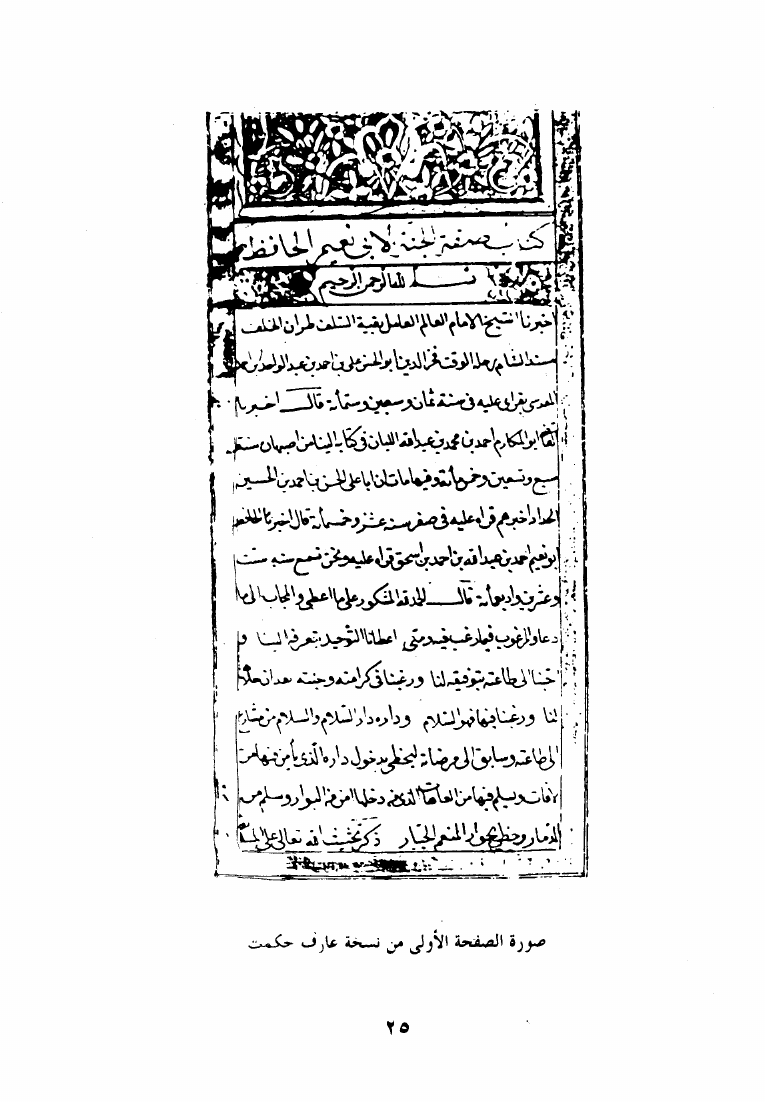 كتاب صفة الجنة لابي نعيم الحافظ
بسم الله الرحمن الرحيم
اخبرنا الشيخ الامام العالم العامل بقية السلف طراز الخلف
مسند الشام رحلة الوقت فخر الدين ابو الحسن علي بن احمد بن عبد الواحد بن احمد
المقدسي بقراي عليه في سنة ثمان وسبعين وستمائة قال اخبرنا
ابو المكارم احمد بن محمد بن عبد الله اللبان في كتابه الينا من اصبهان سنة
سبع وتسعين وخمسمائة وفيها مات ان ابا علي الحسن بن احمد بن الحسين
الحداد اخبرهم قراه عليه في صفر سنة عشر وخمسمائة قال اخبرنا الحافظ
ابو نعيم احمد بن عبد الله بن احمد بن اسحق قراه عليه ونحن نسمع سنه ست
وعشرين واربعمائة قال الحمد لله المشكور على ما اعطى والمجاب الى ما
دعا والمرغوب فيما رغب فيه ومنى اعطانا التوحيد بتعرفه الينا و
احبنا الى طاعته بتوفيقه لنا ورغبنا في كرامته وجنته بعد ان
لنا ورغبنا فيها فهو السلام وداره دار السلام والسلام من
الى طاعته وسابق الى مرضاته ليحظى بدخول داره الذي يأمن فيها من
لافات ويسلم فيها من العاهات الذي من دخلها امن من البوار وسلم من
الدمار وحظي بجوار المنعم الجبار ذكر تحثيث الله تعالى على
صورة الصفحة الأولى من نسخة عارف حكمت
٢٥